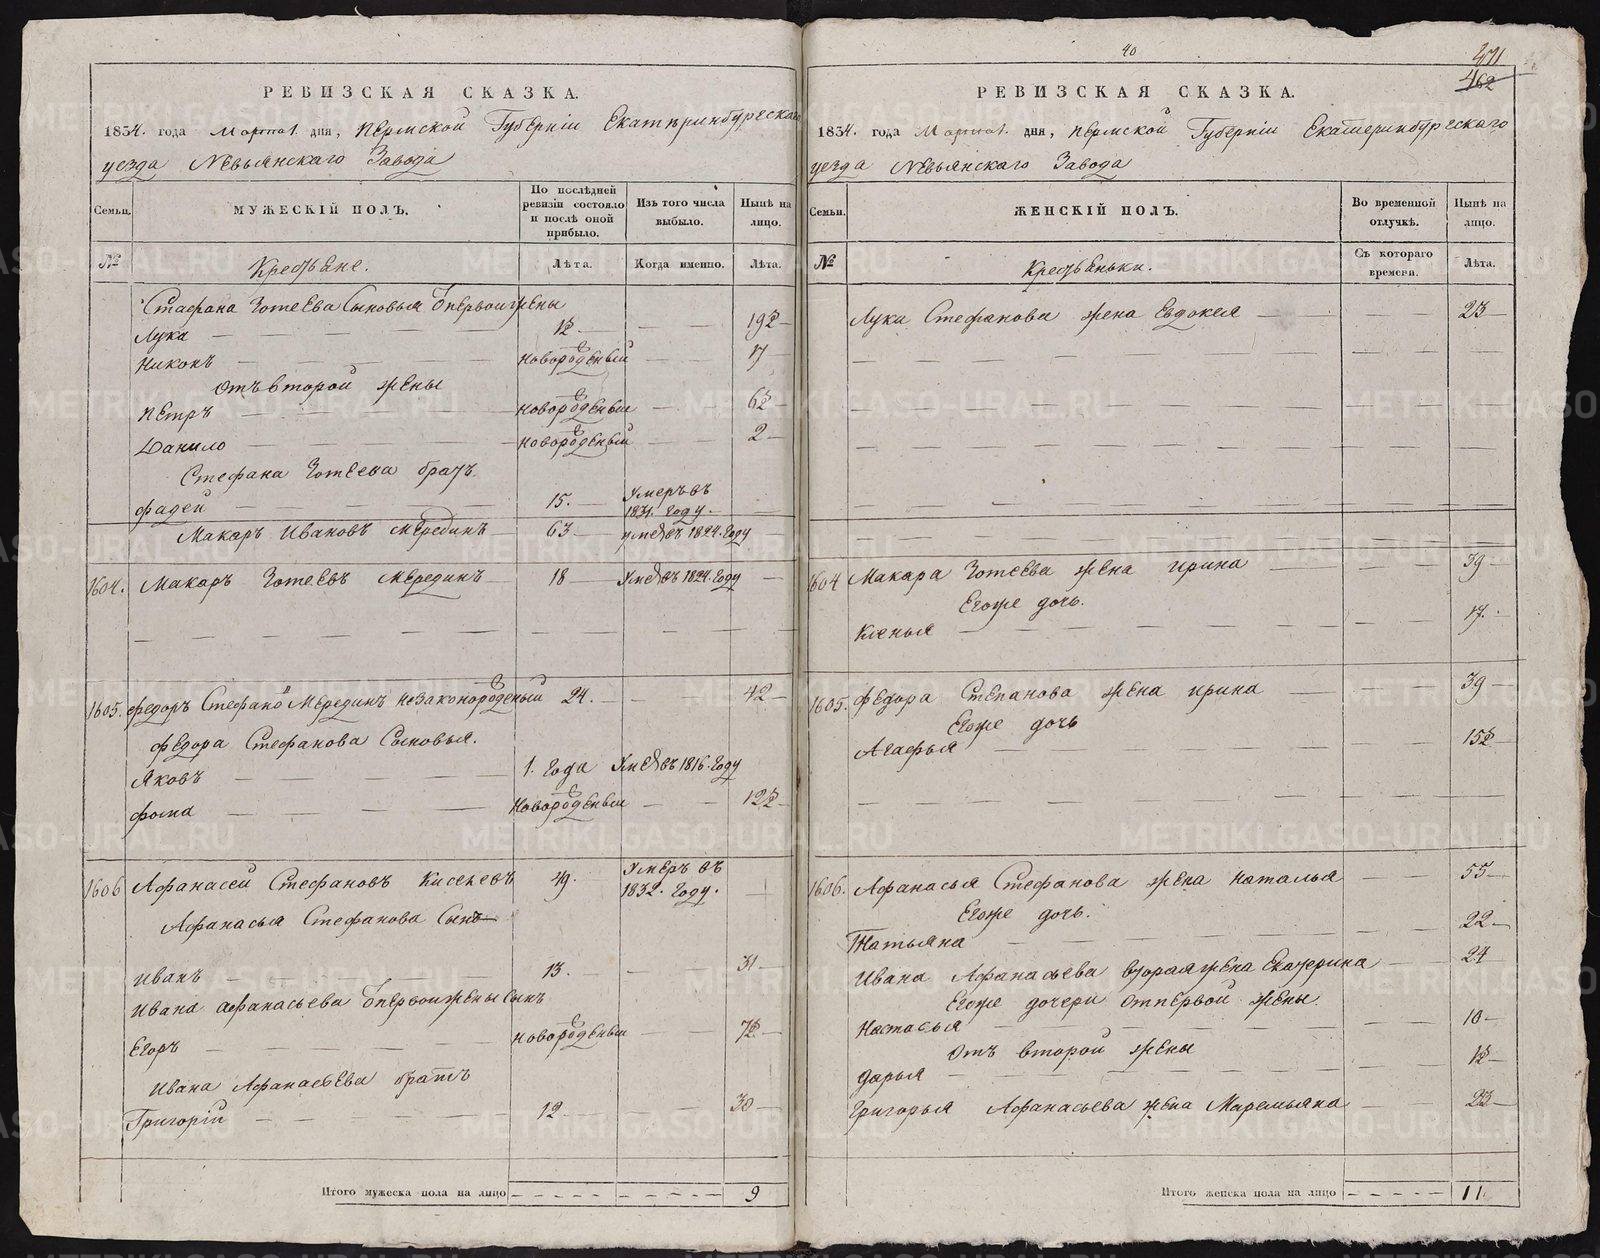 РЕВИЗСКАЯ СКАЗКА.
1834. года Марта 1. дня, Пермской Губернiи Екатеринбургскаго
уезда Невьянскаго Завода
Семьи.
МУЖЕСКIЙ ПОЛЪ.
По послѣдней ревизiи состояло и послѣ оной прибыло.
Изъ того числа выбыло.
Нынѣ на лицо.
№
Крестьяне.
Лѣта.
Когда именно.
Лѣта.
Стафана Зотеева Сыновья 6первои жены
Лука 1½ 19½
Никонъ новорожденый 17
Отъ второй жены
Петръ новорожденый 6½
Данило новорожденый 2
Стефана Зотеева братъ
Фадей 15. Умеръ въ 1831. Году.
Макаръ Ивановъ Мерединъ 63 умеръ въ 1824. Году
1604. Макаръ Зотеевъ Мерединъ 18 Умеръ въ 1824. Году
1605. Федоръ Стефановъ Мерединъ незаконорожденый 24. 42
Федора Стефанова Сыновья.
Яковъ 1. Года Умеръ въ 1816. Году
Фома Новорожденый 12½
1606 Афанасеи Стефановъ Киселевъ 49. Умеръ въ 1832. Году.
Афанасья Стефанова Сынъ
Иванъ 13. 31
Ивана Афанасьева 6первои жены Сынъ
Егоръ новорожденый 7½
Ивана Афанасьева братъ
Григорiй 12 30
Итого мужеска пола на лицо 9
40
371
462
РЕВИЗСКАЯ СКАЗКА.
1834. года Марта 1. дня, Пермской Губернiи Екатеринбургскаго
уезда Невьянскаго Завода
Семьи.
ЖЕНСКIЙ ПОЛЪ.
Во временной отлучкѣ.
Нынѣ на лицо.
№
Крестьеньки.
Съ котораго времени.
Лѣта.
Луки Стефанова жена Евдокея 23
1604 Макара Зотеева жена Ирина 39
Егоже дочь.
Ксенья 17.
1605. Федора Степанова жена Ирина 39
Егоже дочь
Агафья 15½
1606. Афанасья Стефанова жена Наталья 55
Егоже дочь.
Татьяна 22
Ивана Афанасьева вторая жена Екатерина 24
Егоже дочери отпервой жены.
Настасья 10
Отъ второй жены
Дарья 1½
Григорья Афанасьева жена Маремьяна 23
Итого женска пола на лицо 11
METRIKI.GASO-URAL.RU